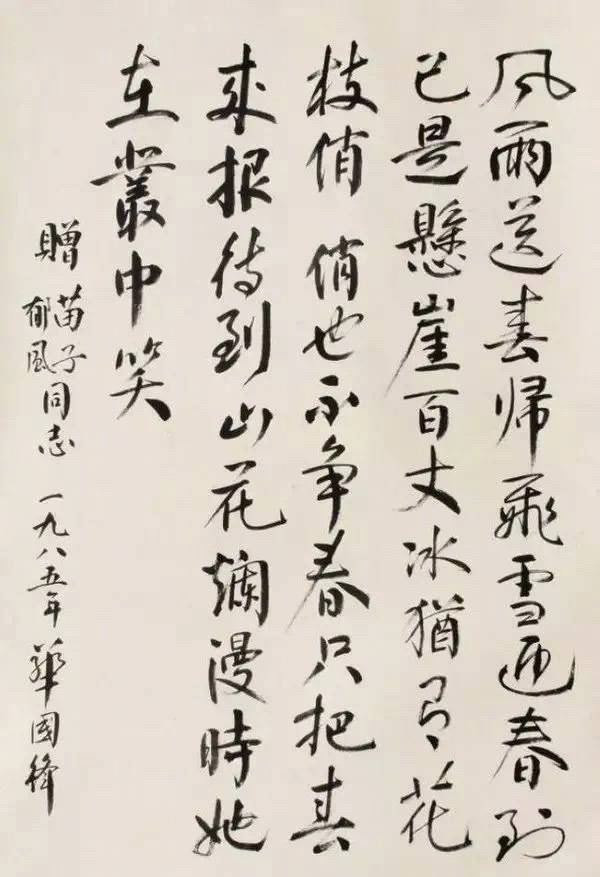 风雨送春归飛雪迎春到
已是懸崖百丈冰猶有花
枝俏 俏也不争春只把春
來报待到山花爛漫時她
在叢中笑
贈苗子郁风同志 一九八五年 華國鋒